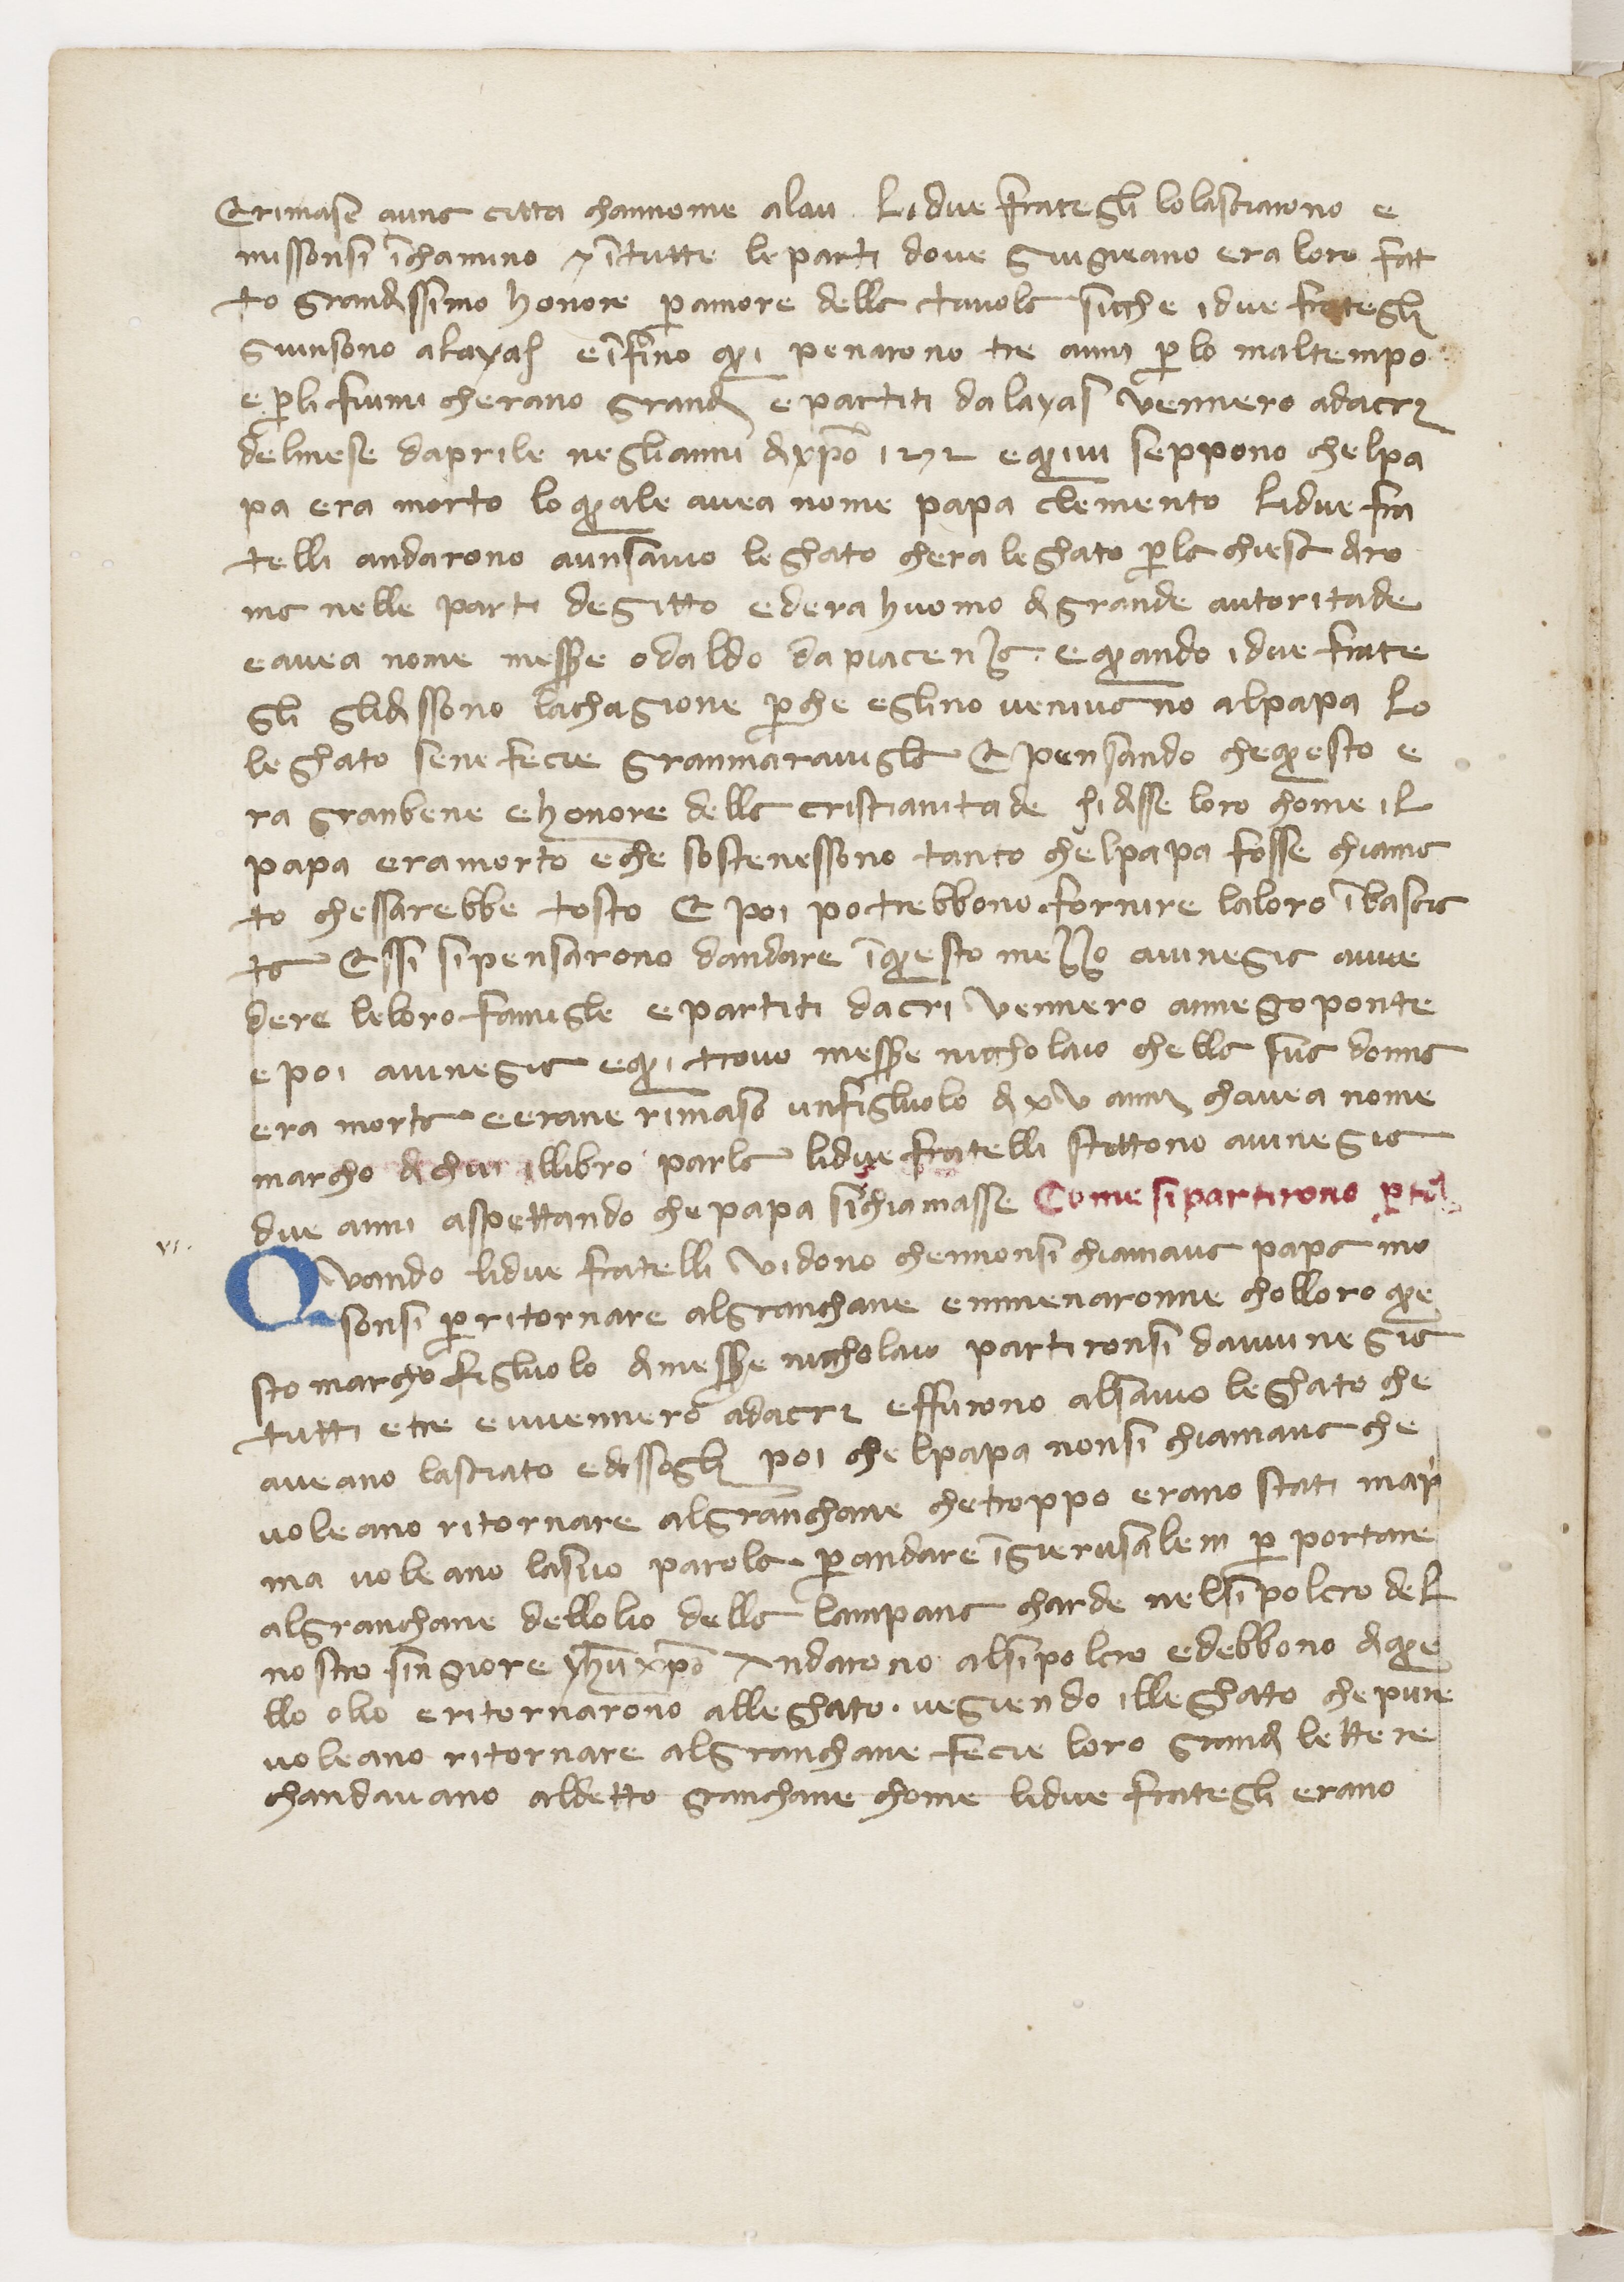 Et rimase auna citta channome alau Lidue frategli lolasciarono e
missonsi ĩchamino et ĩtutte leparti doue giugneano era loro fat
to grandissimo honore p̱amore della tauola sicche idue frategli
giunsono alayas eĩfino qui penarono tre anni p̱lo maltempo
e p̱li fiumi cherano grandi epartiti dalayas vennero adacri
delmese daprile negliannj dixp̃o 1272 equiui seppono chelpa
pa era morto loquale auea nome papa clemento Lidue fra
telli andarono aunsauio leghato chera leghato p̱la chiesa diro
ma nelle parti degitto ederahuomo digrande autoritade
eauea nome mess̱e odaldo dapiacenza. equando idue frate
gli glidissono lachagione p̱che eglino ueniuano alpapa Lo
leghato senefecie granmarauiglia Et pensando chequesto e
ra granbene ehonore della cristianitade si disse loro chome il
papa eramorto eche sostenessono tanto chelpapa fosse chiama
to chessarebbe tosto Et poi potrebbono fornire laloro ĩbascia
ta Essi sipensarono dandare ĩquesto mezzo auinegia auue
dere leloro famigle epartiti dacri vennero annegoponte
epoi auinegia equi trouo mess̱e niccholaio chella sua donna
era morta eerane rimaso unfigluolo dixv anni chauea nome
marcho dichui illibro parla lidue fratelli stettono auinegia
due anni aspettando chepapa sichiamasse Come sipartirono
vi.
Quando lidue fratelli vidono chennonsi chiamaua papa mo
sonsi p̱ritornare algranchane emmenaronne cholloro que
sto marcho figluolo dimess̱e niccholaio partironsi dauuinegia
tutti etre euuennero adacri effurono alsauio leghato che
aueano lasciato edissogli poi chelpapa nonsi chiamaua che
uoleano ritornare algranchane chetroppo erano stati map̱
ma uoleano lasuo parola p̱andare ĩgierusalem p̱ portare
algranchane dellolio della lampana charde nelsipolcro del
nostro singiore yhũ xp̃o Andarono alsipolcro edebbono dique
llo olio eritornarono alleghato. uegiendo illeghato chepure
uoleano ritornare algranchane fecie loro grandi lettere
chandauano aldetto granchane chome lidue frategli erano